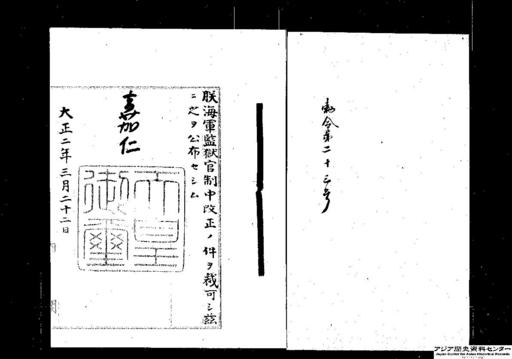 勅令第二十三号
朕海軍監獄官制中改正ノ件ヲ裁可シ茲
ニ之ヲ公布セシム
嘉仁
天皇御璽
大正二年三月二十二日
アジア歴史資料センター
Japan Center for Asian Historical Records